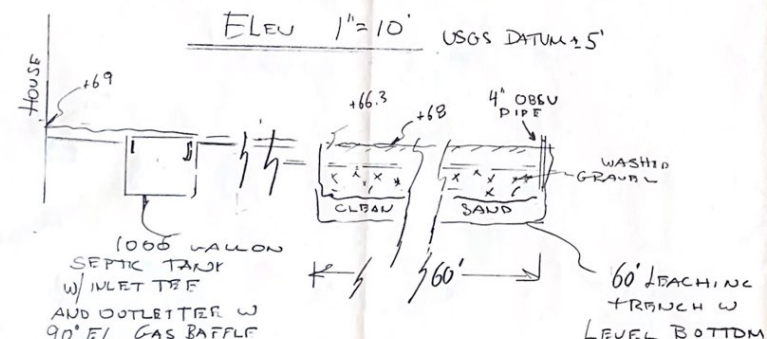 ELEV 1"=10'
USGS DATUM ± 5'
HOUSE
+69
+66.3
+68
4" OBSV
PIPE
WASHED
GRAVEL
CLEAN
SAND
1000 GALLON
SEPTIC TANK
W/ INLET TEE
AND OUTLET TEE W
90° EL GAS BAFFLE
60'
60' LEACHING
TRENCH W
LEVEL BOTTOM